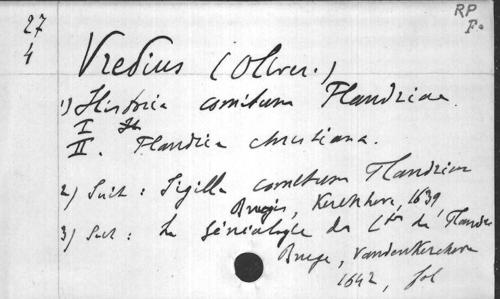 27
4
RP
F.
Vredius (Oliver.)
1) Historia comitum Flandriae.
I
II. Flandria christiana.
2) Suit: Sigilla comitum Flandriae
Brugis, Kerckhove, 1639
3) Suit: La Généalogie des Ctes de Flandre
Bruge, Vandenkerchove
1642, fol